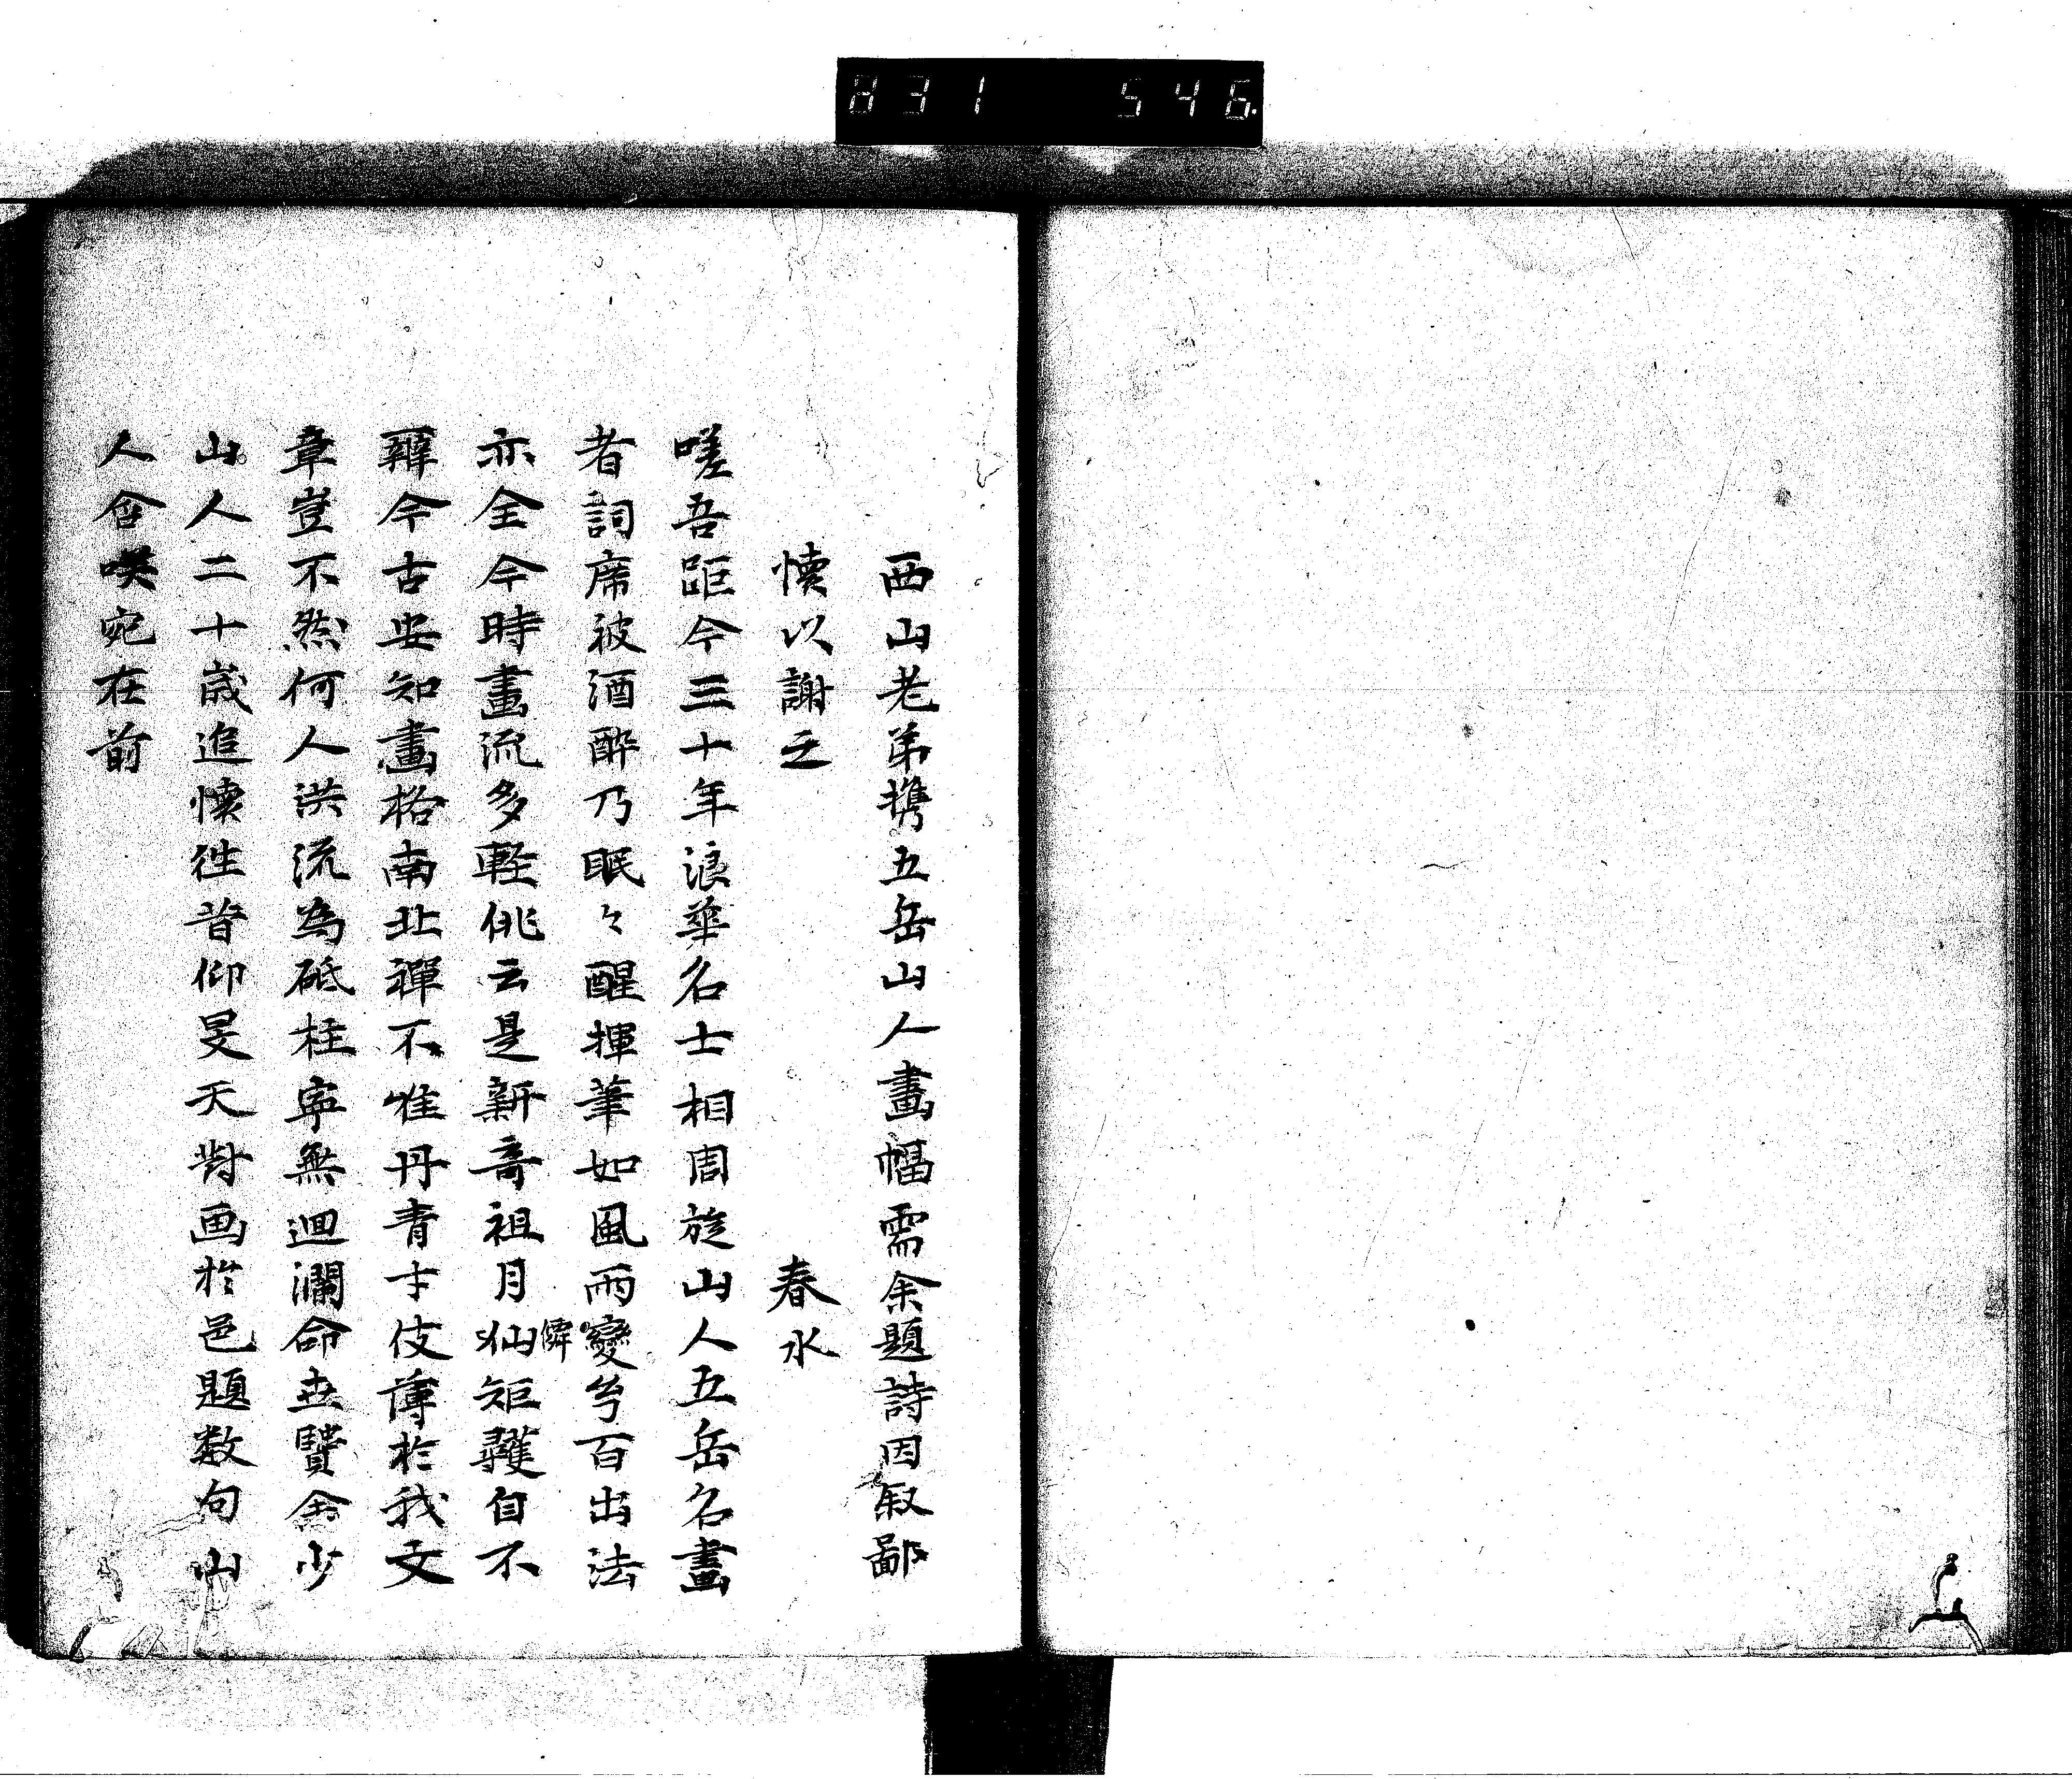 831 546
西山老弟携五岳山人畫幅需余題詩因叙鄙
懐以謝之 春水
嗟吾距今三十年浪華名士相周旋山人五岳名畫
者詞席被酒酔乃眠々醒揮筆如風雨變兮百出法
亦全今時畫流多輕佻云是新奇祖月仙矩矱自不
僻
辨今古安知畫格南北禪不唯丹青士伎薄於我文
章豈不然何人洪流為砥柱寧無迴瀾命世賢余少
山人二十歳追懐徃昔仰旻天對画於邑題数句山
人含咲宛在前